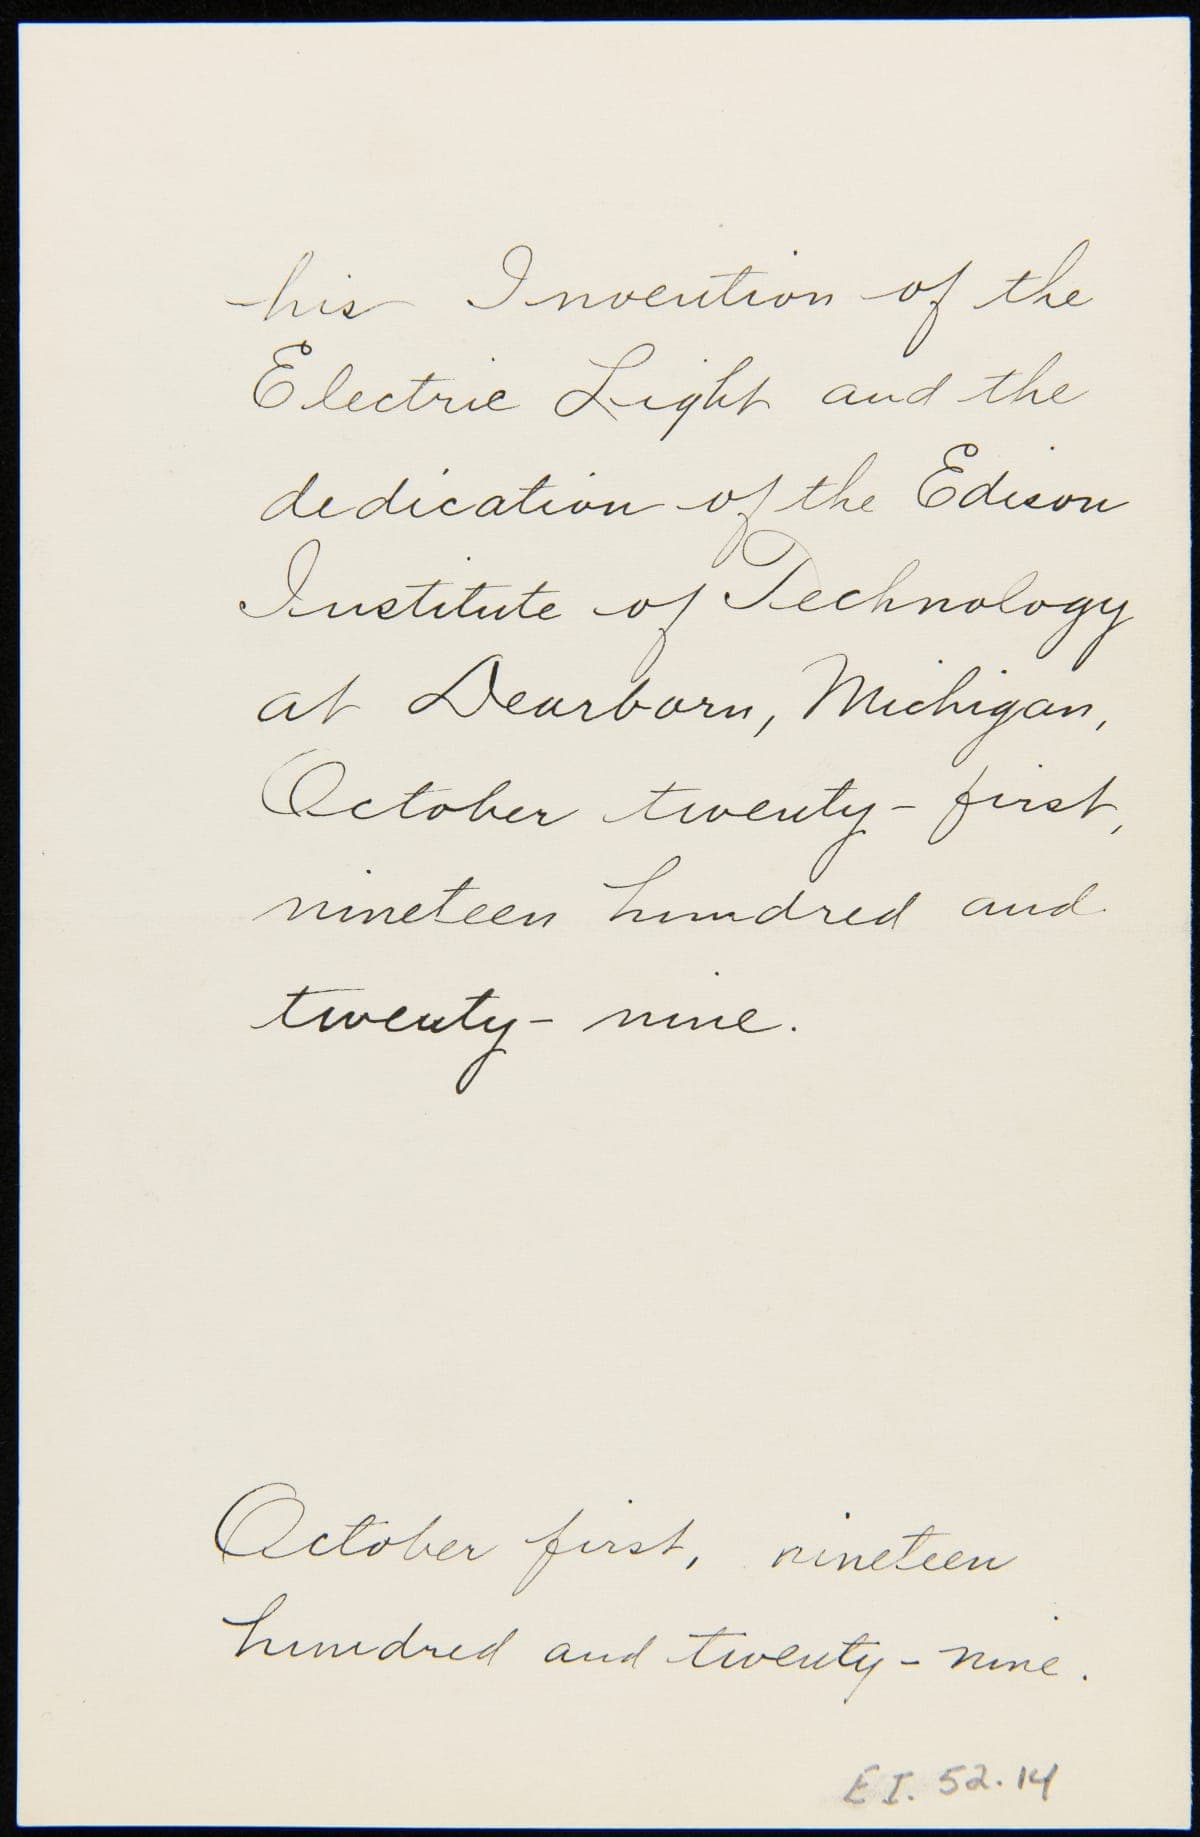 his Invention of the
Electric Light and the
dedication of the Edison
Institute of Technology
at Dearborn, Michigan,
October twenty-first,
nineteen hundred and
twenty-nine.
October first, nineteen
hundred and twenty-nine.
E.I. 52.14